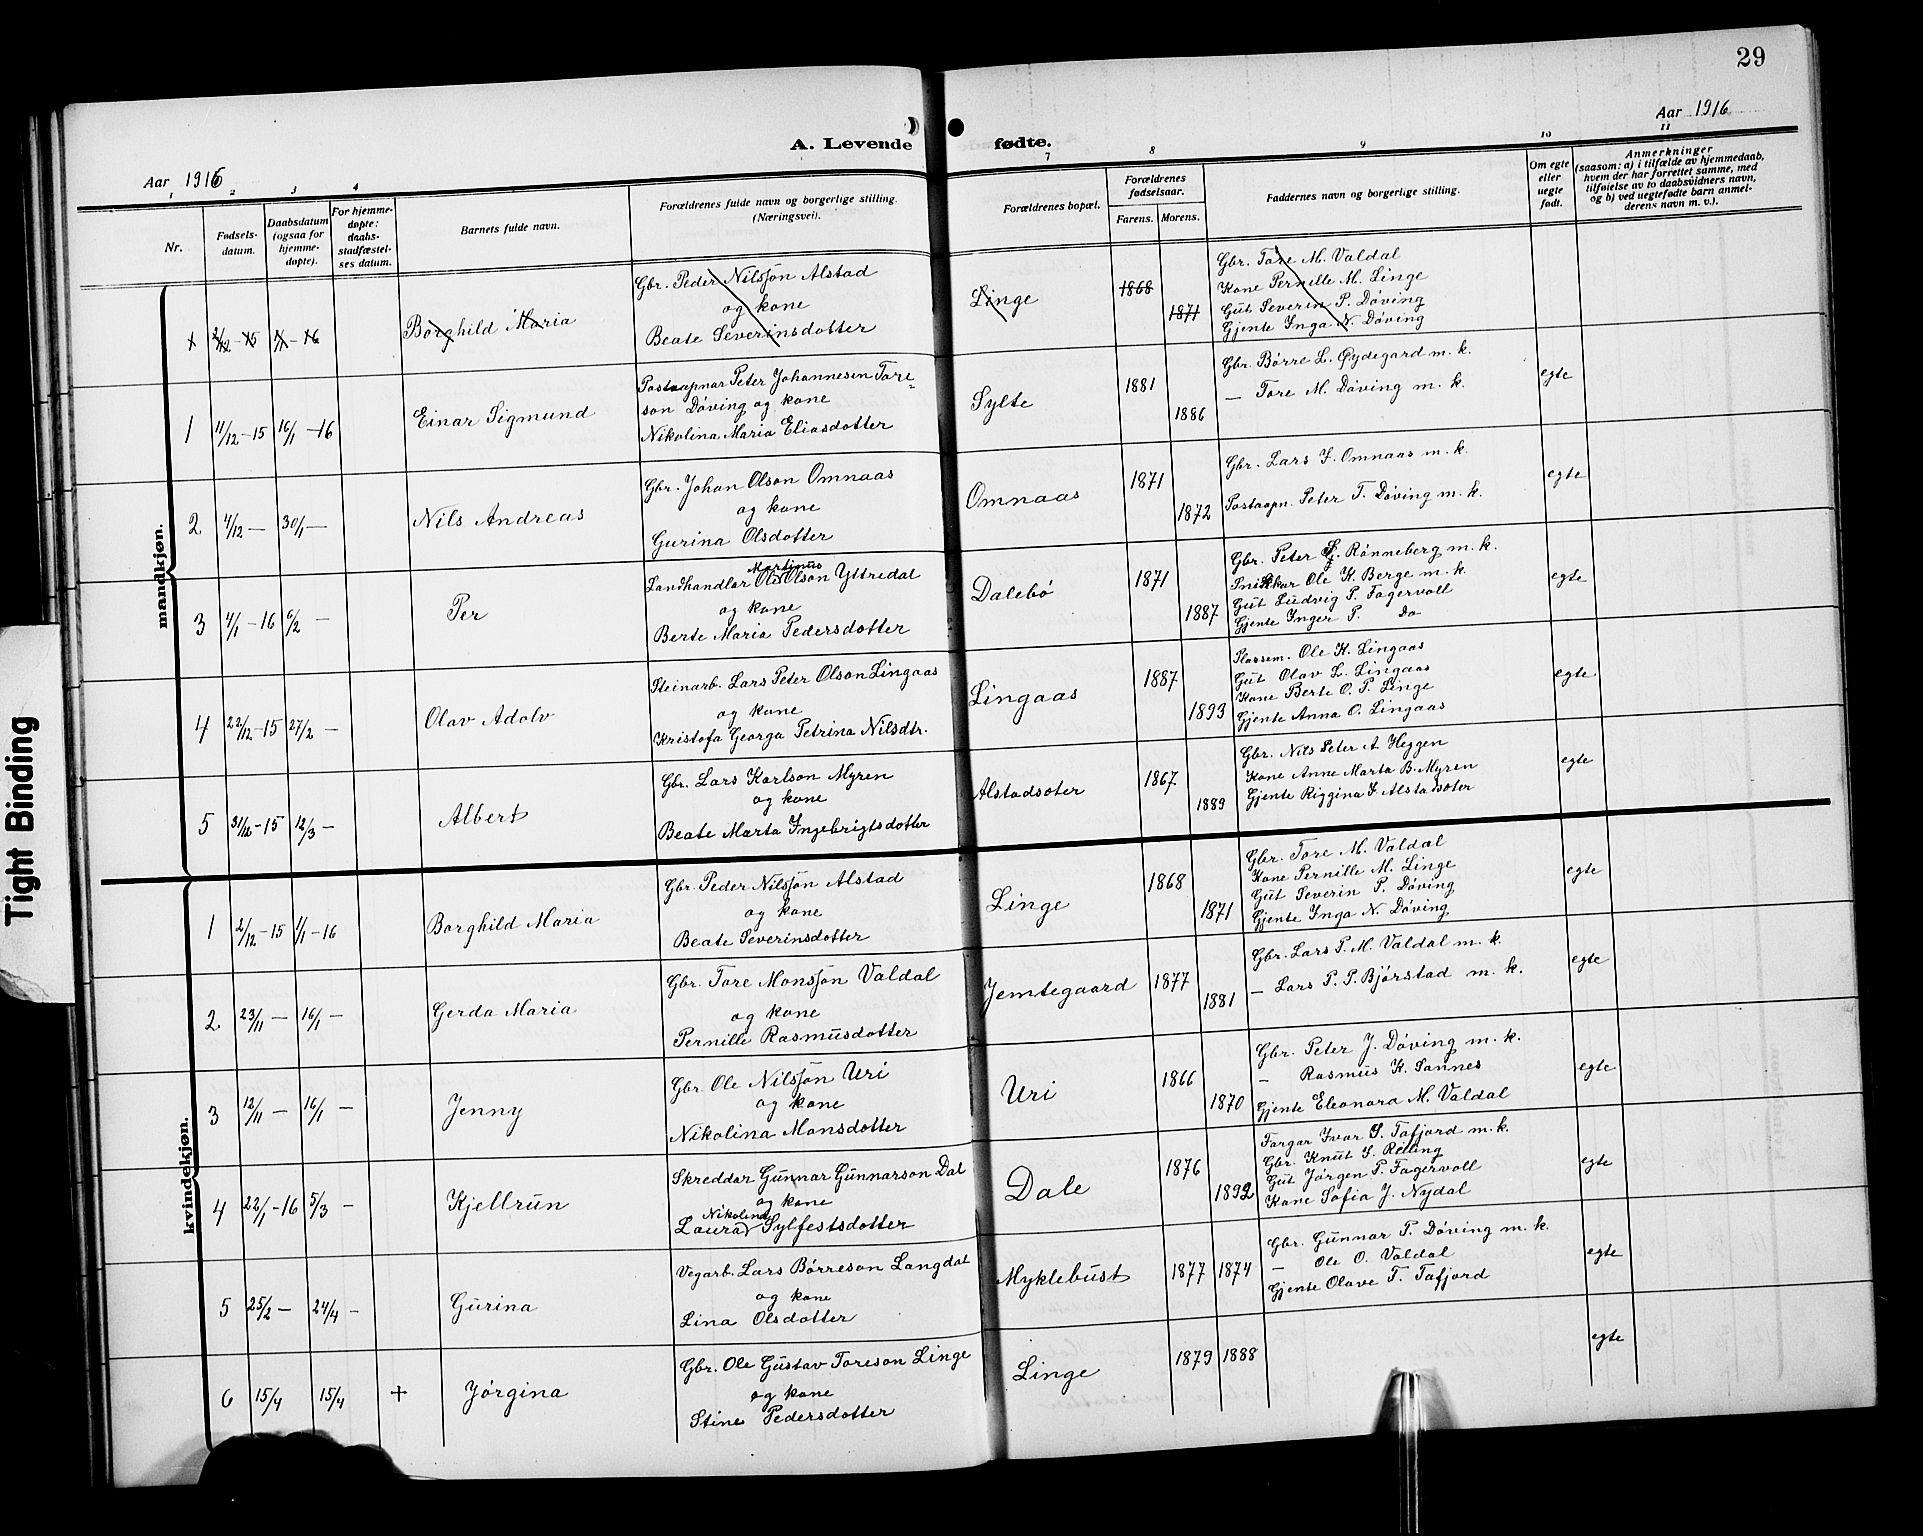 29
Aar 1916
A. Levende fødte.
Aar 1916
1 2 3 4 7 8 9 10 11
Nr.
Fødsels-
datum.
Daabsdatum
(ogsaa for
hjemme-
døpte).
For hjemme-
døpte:
daabs-
stadfæstel-
ses datum.
Barnets fulde navn.
Forældrenes fulde navn og borgerlige stilling.
(Næringsvei).
Forældrenes bopæl.
Forældrenes
fødselsaar.
Farens. Morens.
Faddernes navn og borgerlige stilling.
Om egte
eller
uegte
født.
Anmerkninger
(saasom: a) i tilfælde av hjemmedaab,
hvem der har forrettet samme, med
tilføielse av to daabsvidners navn,
og b) ved uegtefødte barn anmel-
derens navn m. v.).
mandkjøn.
1 2/12-15 1/1-16
Borghild Maria
Gbr. Peder Nilssøn Alstad
og kone
Beate Severinsdotter
Linge
1868
1871
Gbr. Tore M. Valdal
Kone Pernille M. Linge
Gut Severin P. Døving
Gjente Inga N. Døving
1 11/12-15 16/1-16
Einar Sigmund
Postaapnar Peter Johannesen Tore-
son Døving og kone
Nikolina Maria Eliasdotter
Sylte
1881
1886
Gbr. Børre L. Øydegard m. k.
— Tore M. Døving m. k.
egte
2 4/12 — 30/1 —
Nils Andreas
Gbr. Johan Olson Omnaas
og kone
Gurina Olsdotter
Omnaas
1871
1872
Gbr. Lars J. Omnaas m. k.
Postaapn. Peter T. Døving m. k.
egte
3 4/1-16 6/2 —
Per
Martinus
Landhandlar Ole Olson Yttredal
og kone
Berte Maria Pedersdotter
Dalebø
1871
1887
Gbr. Peter G. Rønneberg m. k.
Snikkar Ole K. Berge m. k.
Gut Ludvig P. Fagervoll
Gjente Inger P. Do
egte
4 22/12-15 27/2 —
Olav Adolv
Steinarb. Lars Peter Olson Lingaas
og kone
Kristofa Georga Petrina Nilsdtr.
Lingaas
1887
1893
Plassem. Ole K. Lingaas
Gut Olav L. Lingaas
Kone Berte O. P. Linge
Gjente Anna O. Lingaas
egte
5 31/12-15 12/3 —
Albert
Gbr. Lars Karlson Myren
og kone
Beate Marta Ingebrigtsdotter
Alstadsæter
1867
1889
Gbr. Nils Peter A. Heggen
Kone Anne Marta B. Myren
Gjente Riggina J. Alstadsæter
egte
kvindekjøn.
1 2/12-15 1/1-16
Borghild Maria
Gbr. Peder Nilssøn Alstad
og kone
Beate Severinsdotter
Linge
1868
1871
Gbr. Tore M. Valdal
Kone Pernille M. Linge
Gut Severin P. Døving
Gjente Inga N. Døving
egte
2 23/11 — 16/1 —
Gerda Maria
Gbr. Tore Monssøn Valdal
og kone
Pernille Rasmusdotter
Jemtegaard
1877
1881
Gbr. Lars P. M. Valdal m. k.
— Lars P. P. Bjørstad m. k.
egte
3 12/11 — 16/1 —
Jenny
Gbr. Ole Nilssøn Uri
og kone
Nikolina Monsdotter
Uri
1866
1870
Gbr. Peter J. Døving m. k.
— Rasmus K. Sannes
Gjente Eleonora M. Valdal
egte
4 22/1-16 5/3 —
Kjellrun
Skreddar Gunnar Gunnarson Dal
og kone
Nikolina
Laura Sylfestsdotter
Dale
1876
1892
Fargar Ivar S. Tafjord m. k.
Gbr. Knut S. Relling
Gut Jørgen P. Fagervoll
Kone Sofia J. Nydal
egte
5 25/2 — 24/4 —
Gurina
Vegarb. Lars Børreson Langdal
og kone
Lina Olsdotter
Myklebust
1877 1874
Gbr. Gunnar P. Døving m. k.
— Ole O. Valdal
Gjente Olave T. Tafjord
egte
6 15/4 15/4 +
Jørgina
Gbr. Ole Gustav Toreson Linge
og kone
Stine Pedersdotter
Linge
1879 1888
egte
Tight Binding